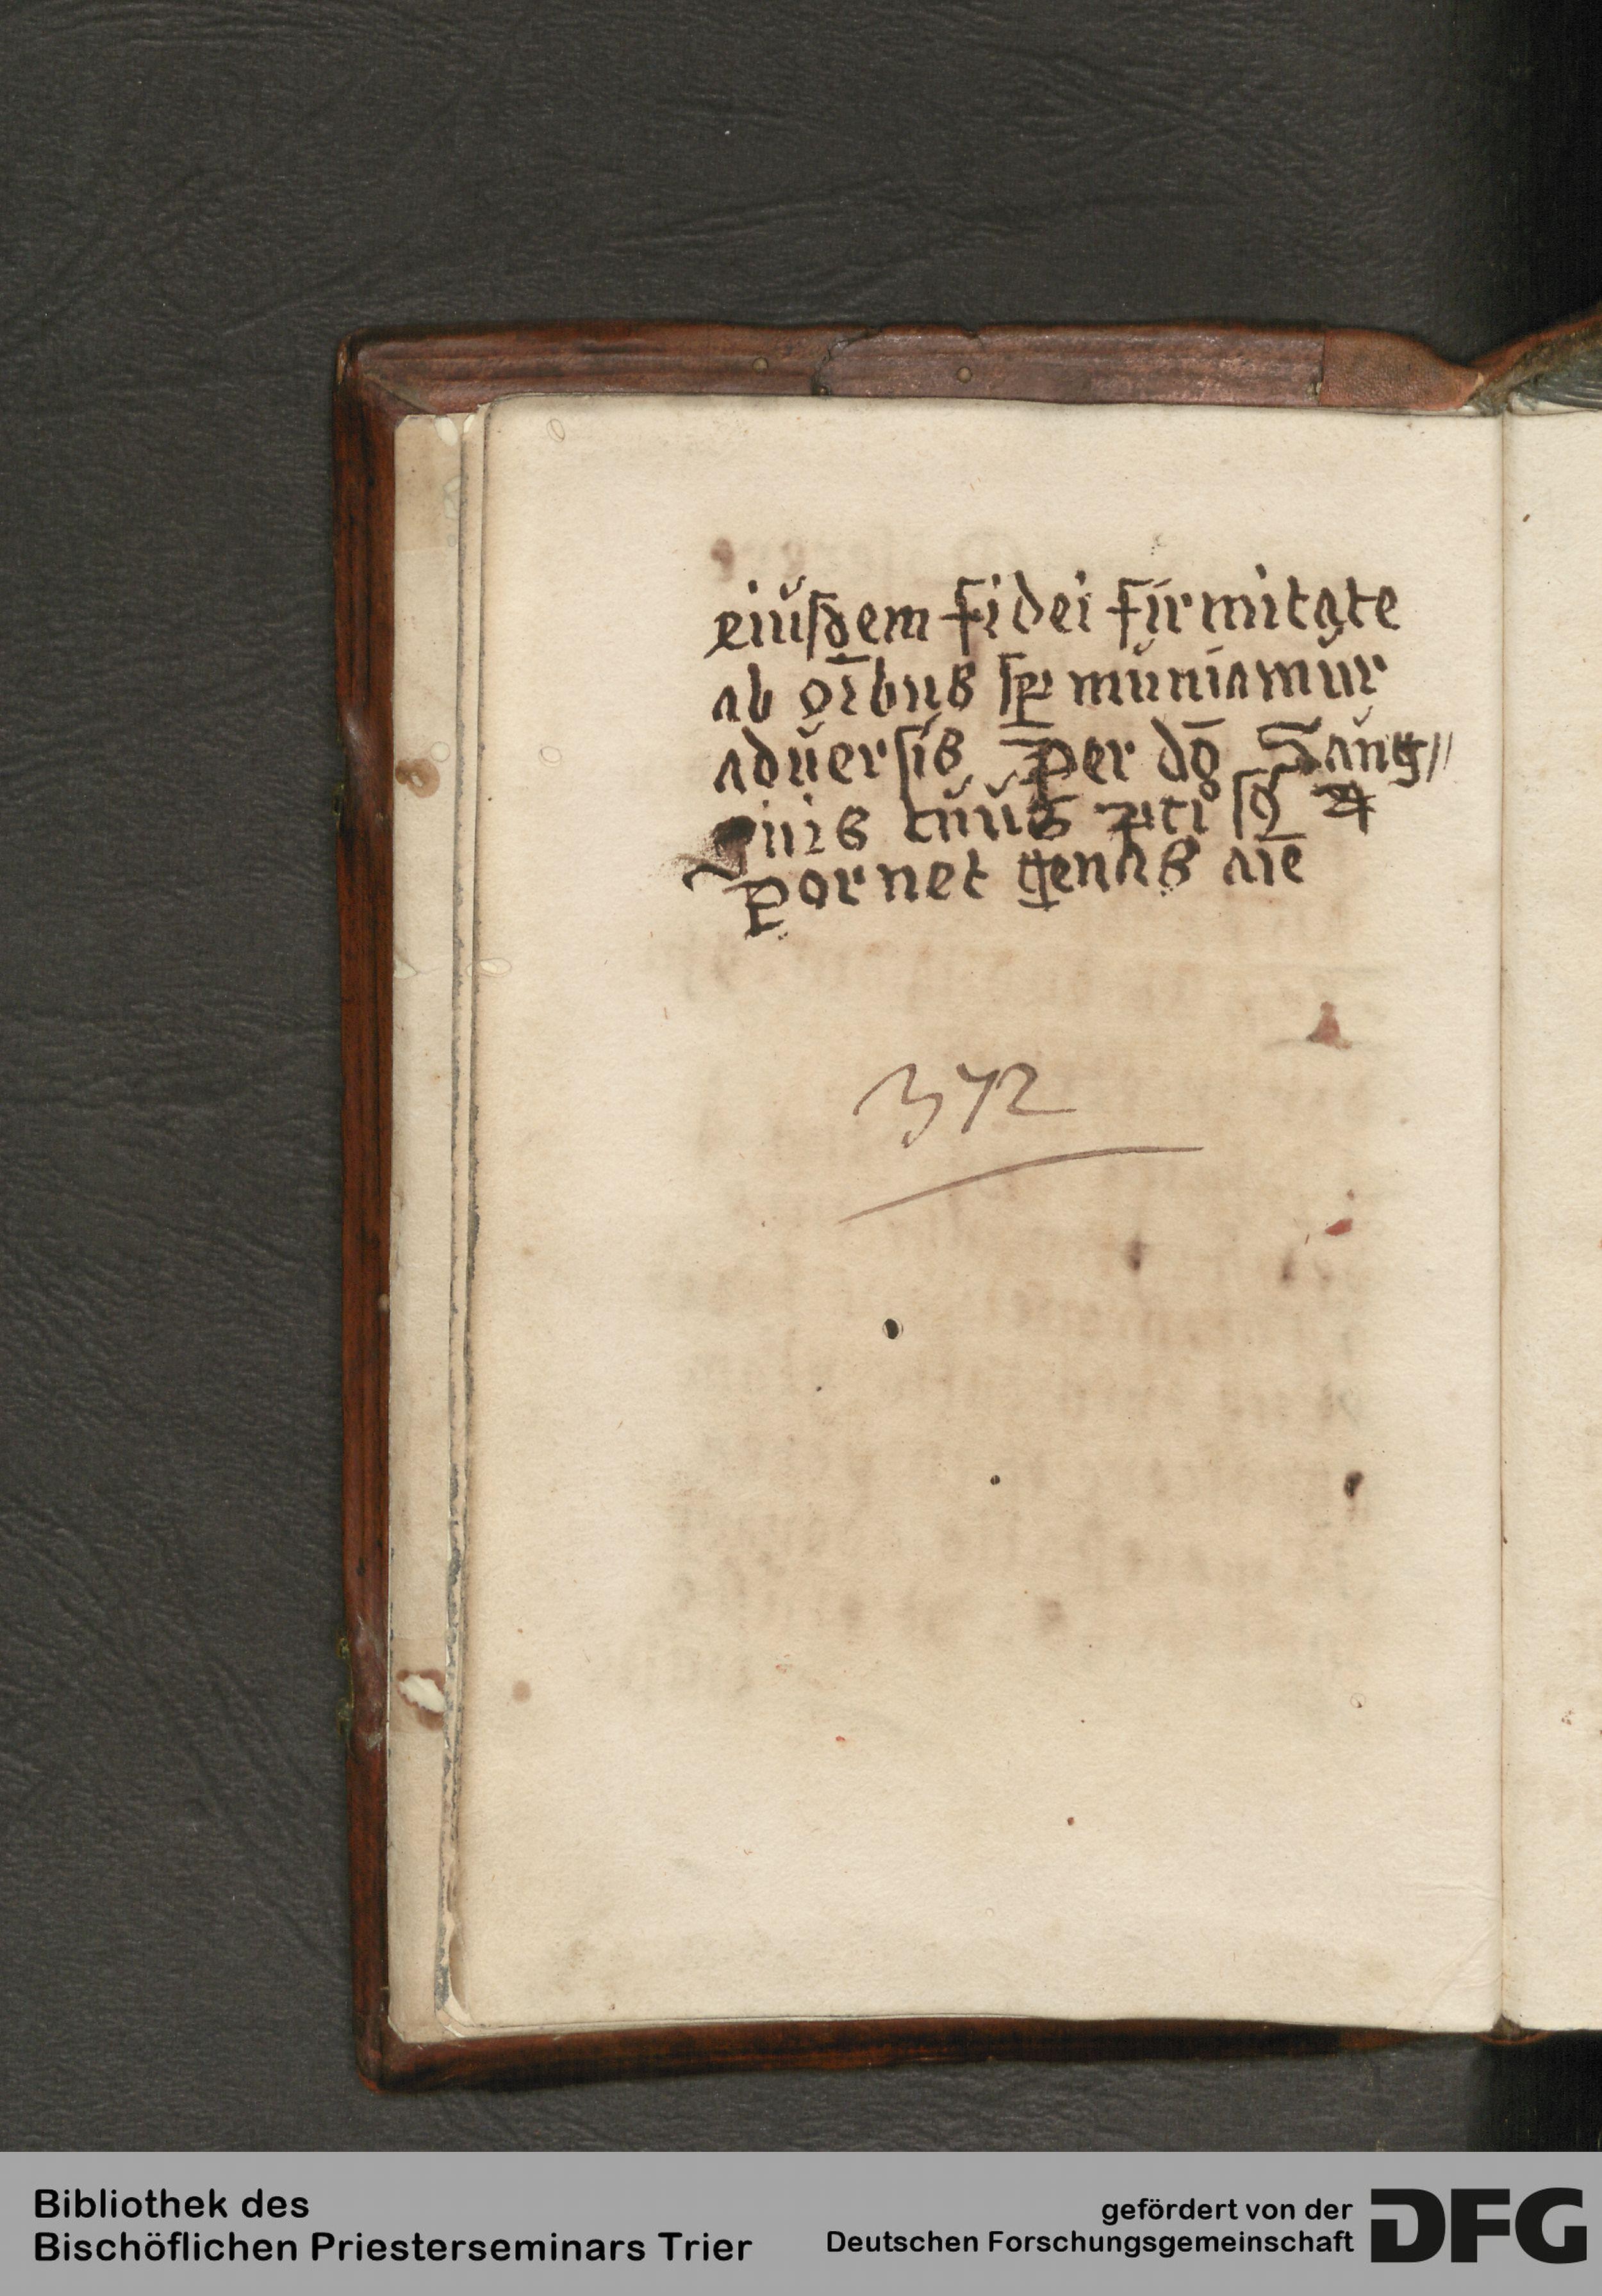 eiusdem fidei firmitate
ab oı̅bus sꝑ muniamur
aduersis Per do̅ Sang//
uis tuus xp̅i
pornet genas aie̅
372
Bibliothek des
Bischöflichen Priesterseminars Trier
gefördert von der
Deutschen Forschungsgemeinschaft
DFG